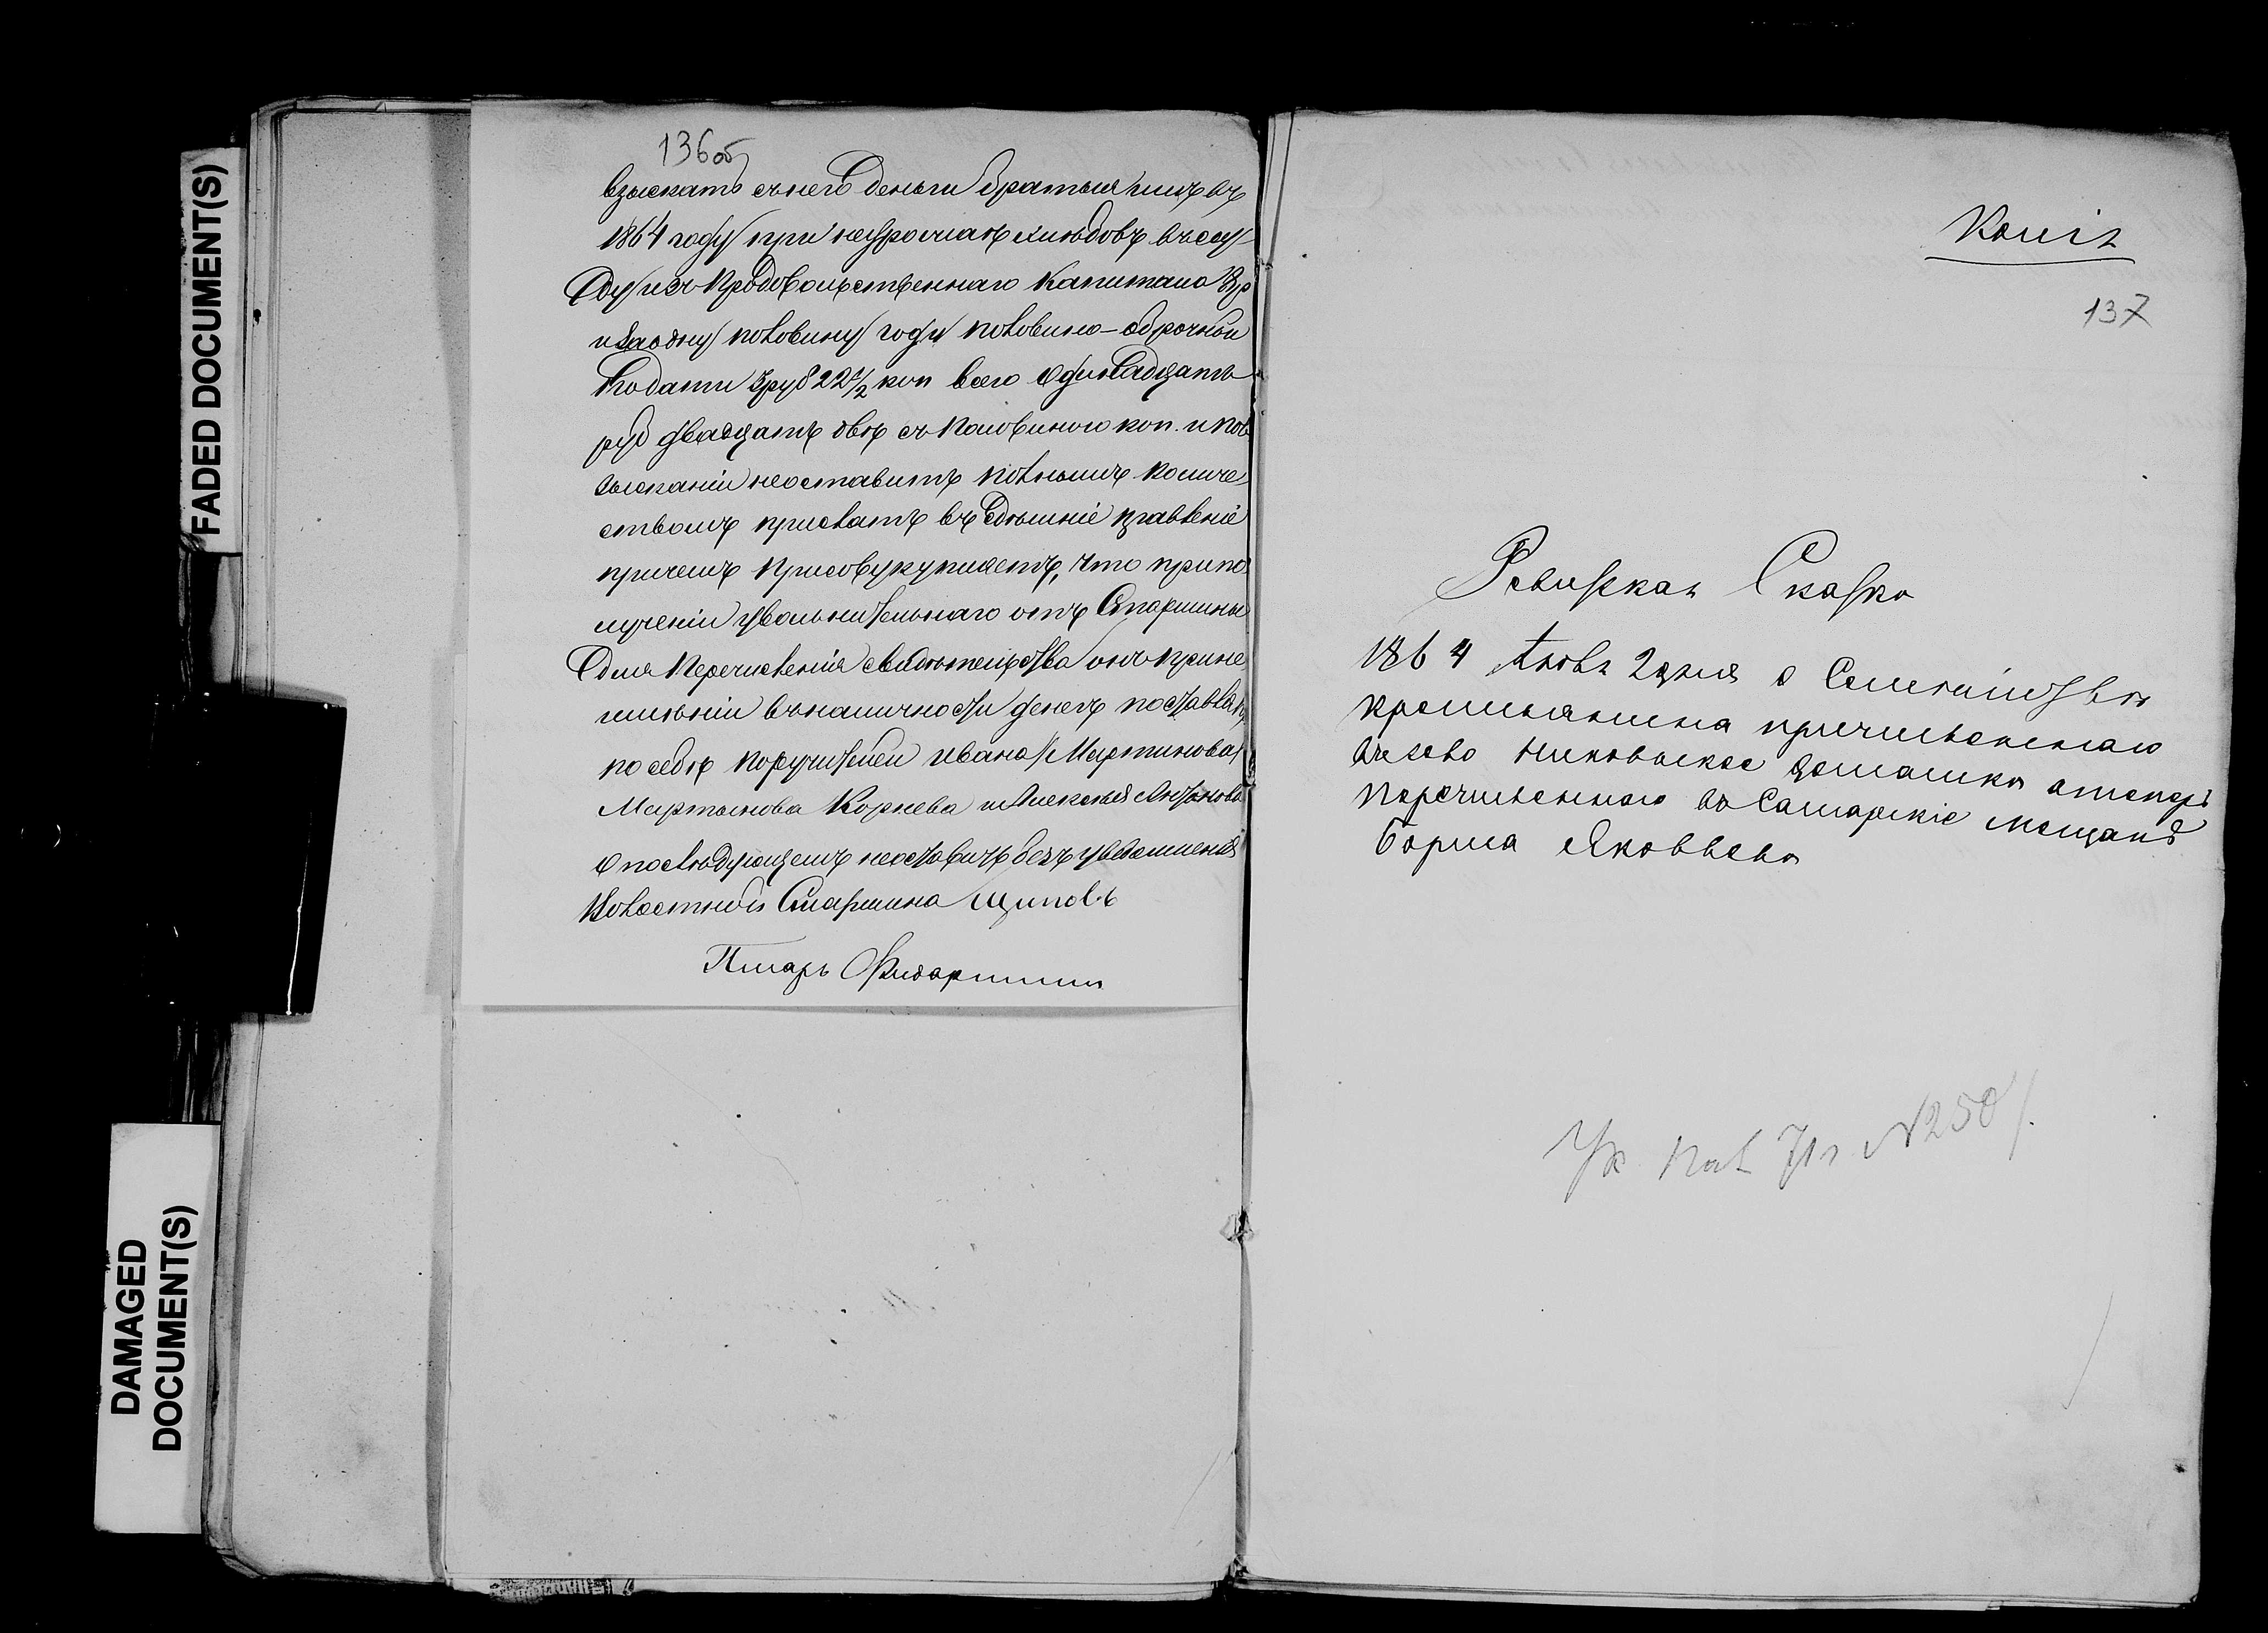 FADED DOCUMENT(S)
DAMAGED
DOCUMENT(S)
136об
взыскать съ него деньги братыя имъ въ
1864 году при неурожаѣ хлѣбовъ въ ссу-
ду изъ Продовольственнаго Капитала 8 р
и за одну половину года половино-оброчной
подати 3 руб 22 1/2 коп всего одинадцать
руб двадцать двѣ съ половиною коп. и по в
зысканіи неоставить полнымъ количе
ствомъ прислать въ здѣшніе правленіе
причемъ присовукупляетъ, что при по
лученіи увольнительнаго отъ Старшины
для Перечисленія свидѣтельства онъ при не
имѣніи въ наличности денегъ поставлялъ
по себѣ поручителей Ивана Мартинова
Мартынова Корнева и Алексѣя Антонова
о послѣдующемъ неоставить безъ увѣдомленія
Волостной Старшина Щиповъ
Писарь
Копія
137
Ревизская Сказка
1864 2 дня о Семействѣ
крестьянина причисленнаго
въ село домашка а теперь
перечисленнаго въ Самарскіе мещане
Бориса Яковлева
№ 250